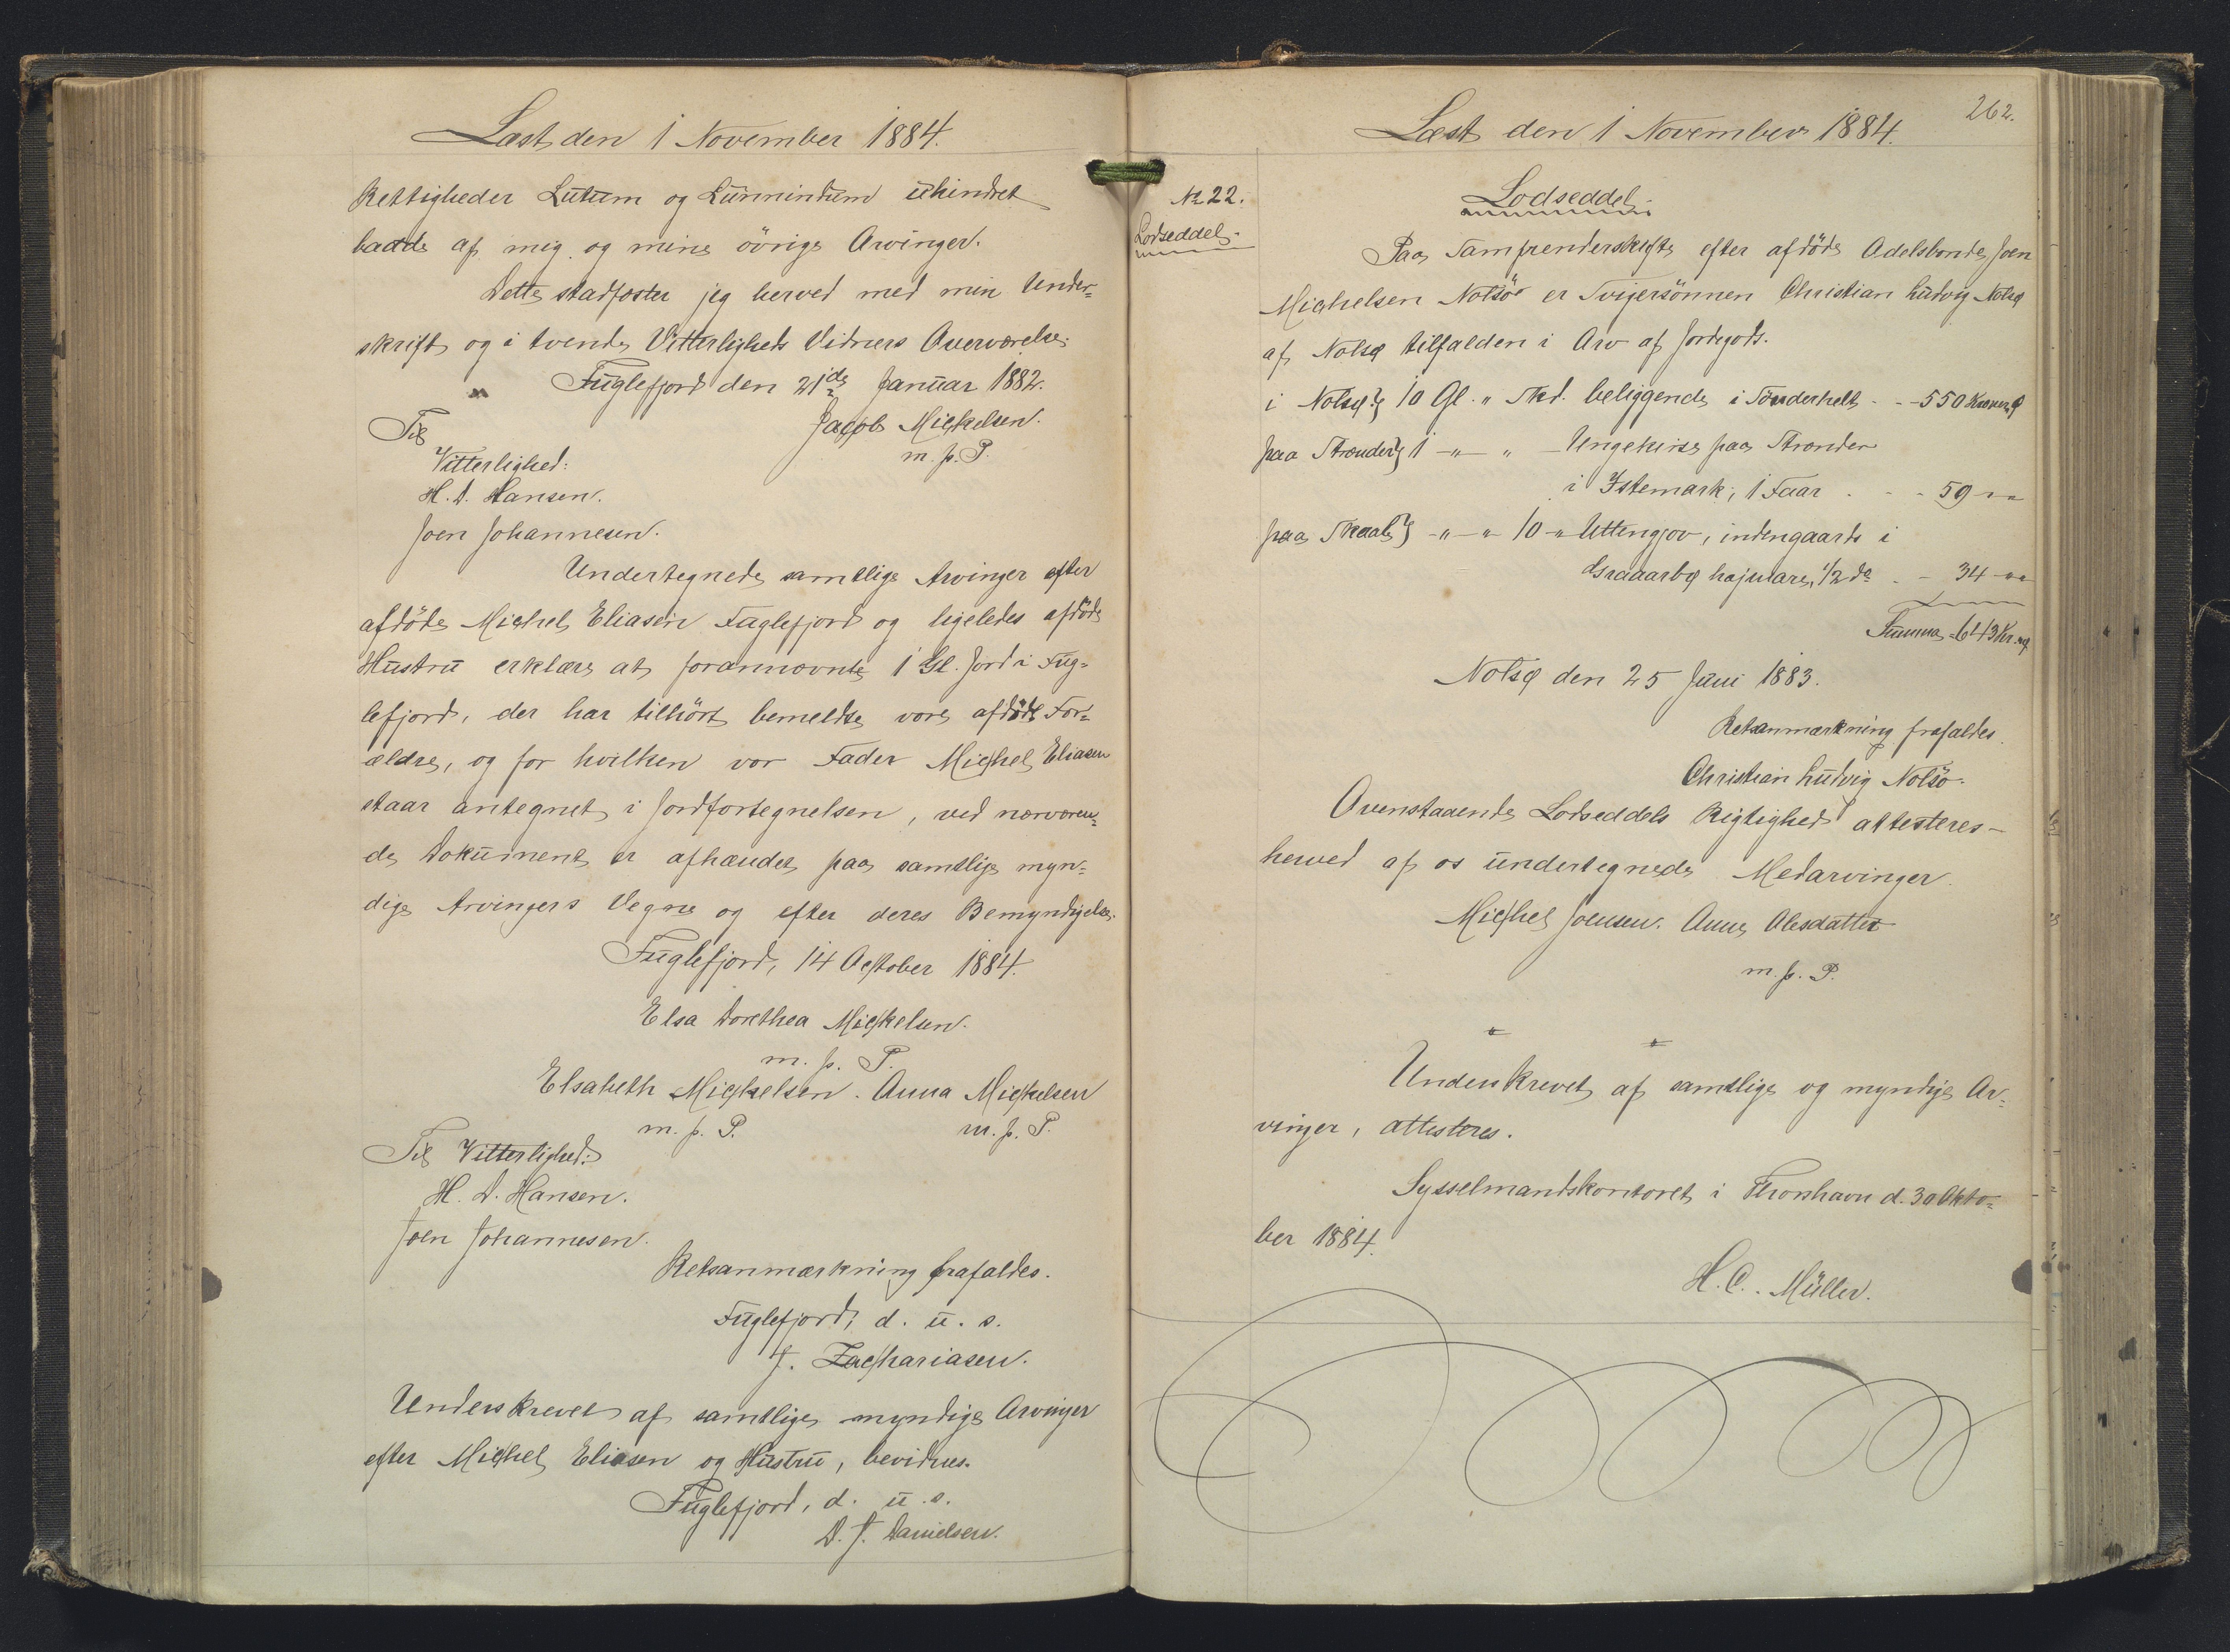 Læst den 1 November 1884.
Rettigheder Lutum og Lunnindum uhindret
baade af mig og mine øvrige Arvinger.
Dette stadfæster jeg herved med min Under=
skrift og i tvende Vitterligheds Vidners Overværelse.
Fuglefjord den 21de Januar 1882.
Jacob Michelsen.
Til
m. p. P.
Vitterlighed:
H. D. Hansen.
Joen Johannesen.
Undertegnede samtlige Arvinger efter
afdöde Michel Eliasen Fuglefjord og ligeledes afdöde
Hustru erklære at forannævnte 1 Gl. Jord i Fug=
lefjord, der har tilhört bemeldte vore afdöde For=
ældre, og for hvilken vor Fader Michel Eliasen
staar antegnet i Jordfortegnelsen, ved nærværen=
de Dokument er afhændet paa samtlige myn=
dige Arvingers Vegne og efter deres Bemyndigelse.
Fuglefjord, 14 October 1884.
Elsa Dorethea Michelsen.
m. p. P.
Elsabeth Michelsen. Anna Michelsen
m. p. P. m. p. P.
Til Vitterlighed:
H. D. Hansen.
Joen Johannesen.
Retsanmærkning frafaldes.
Fuglefjord, d. u. s.
J. Zachariasen.
Underskrevet af samtlige myndige Arvinger
efter Michel Eliasen og Hustru, bevidnes.
Fuglefjord, d. u. s.
D. J. Danielsen.
262.
Læst den 1 November 1884.
№ 22.
Lodseddel.
Lodseddel.
Paa Samfrenderskifte efter afdöde Odelsbonde Joen
Michelsen Nolsö er Svigersönnen Christian Ludvig Nolsø
af Nolsø tilfalden i Arv af Jordegods.
i Nolsø } 10 Gl. " Skd. beliggende i Sönderhelt - - 550 Kroner
paa Strender } 1 -"- " - Ungekirse paa Strender
i Istemark, 1 Faar . - - 59 -"-
paa Skaale } -"-"- 10 -"- Uttengjov, indengaards i
hajmare, 1/2 do . - 34 -"-
Summa 643 Kr.
Nolsø den 25 Juni 1883.
Retsanmærkning frafaldes.
Christian Ludvig Nolsö.
Ovenstaaende Lodseddels Rigtighed attesteres
herved af os undertegnede Medarvinger.
Michel Joensen. Anne Olesdatter
m. p. P.
Underskrevet af samtlige og myndige Ar=
vinger, attesteres.
Sysselmandskontoret i Thorshavn d. 30 Okto=
ber 1884.
H. C. Müller.